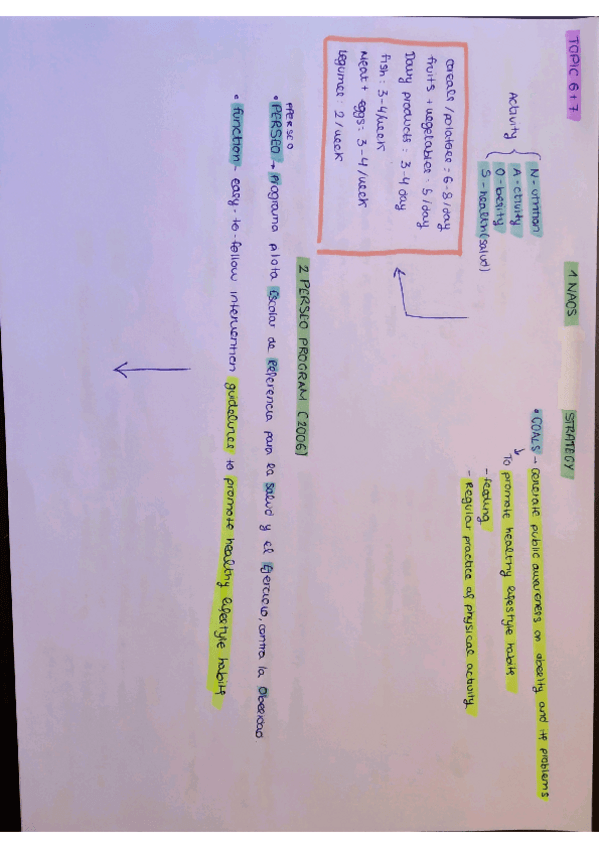 TOPIC 6+7
1 NAOS STRATEGY
Activity
N-utrition
A-ctivity
O-besity
S-health (salud)
• GOALS → Generate public awareness on obesity and its problems
↳ To promote healthy lifestyle habits
- feeding
- Regular practice of physical activity
cereals/potatoes: 6-8/day
fruits + vegetables: 5/day
Dairy products: 3-4 day
fish: 3-4/week
Meat + eggs: 3-4/week
Legumes: 2/week
2 PERSEO PROGRAM (2006)
PERSEO
• PERSEO → Programa piloto Escolar de Referencia para la Salud y el Ejercicio, contra la Obesidad
• function - easy-to-follow intervention guidelines to promote healthy lifestyle habits